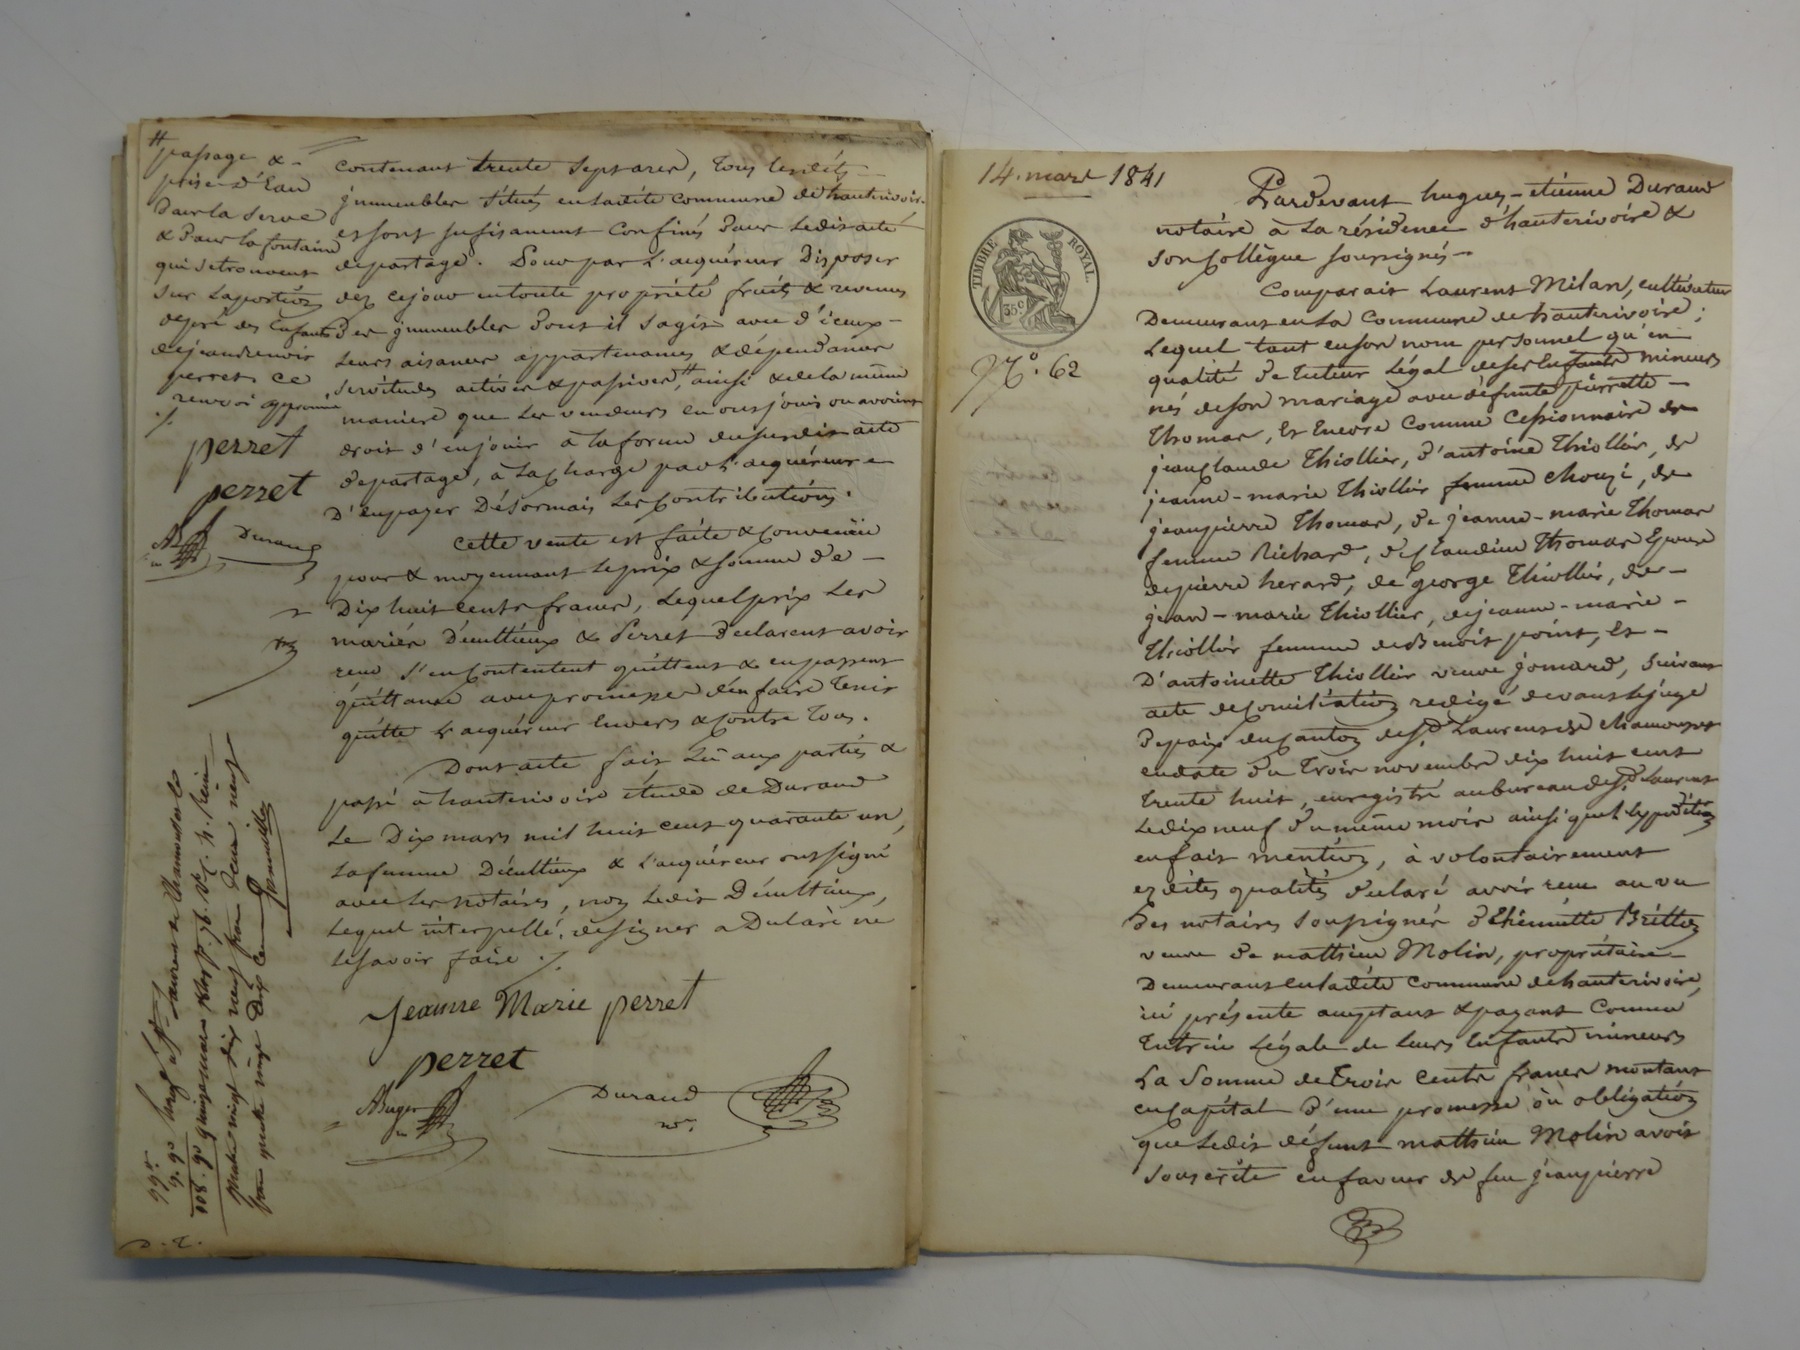 # passage & -
prise d'Eau
dans la serve
& dans la fontaine
qui se trouvent
sur la portion
du pré des Enfants
de jean benoit
perret ce
renvoi approuvé
./.
perret
perret
Durand
contenant trente sept ares, tous lesdits
jmmeubles situés en ladite commune de hauterivoire
et sont sufisament confinés dans ledit acte
de partage. Pour par l'acquéreur disposer
dez ce jour en toute propriété fruits & revenus
des jmmeubles dont il sagit avec d'iceux -
leurs aisances appartenances & dépendances
servitudes actives & passives, # ainsi & de la même
maniere que les vendeurs en ont joui ou avoient
droit d'en jouir à la forme du susdit acte
de partage, à la charge par l'acquéreur -
d'en payer désormais les contributions.
Cette vente est faite & convenüe
pour & moyennant le prix & somme de -
Dix huit cents francs, lequel prix les
mariés Décultieux & Perret declarent avoir
recu s'en contentent quittent & en passent
quittance avec promesse d'en faire tenir
quitte l'acquéreur Envers & contre tous.
Dont acte fait lû aux parties &
passé à hauterivoire étude de Durand
Le Dix mars mil huit cent quarante un,
la femme Décultieux & l'acquéreur ont signé
avec les notaires, non ledit Décultieux,
lequel interpellé de signer a Declaré ne
le savoir faire ./.
Jeanne Marie perret
perret
Durand
nre.
99f
9. 90
108. 90
D. T.
14. mars 1841
TIMBRE ROYAL.
35c
No. 62
Pardevant hugues - etienne Durand
notaire à la résidence d'hauterivoire &
son Collègue soussignés -
Comparait Laurent Milan, cultivateur
Demeurant en la commune de hauterivoire;
Lequel tant en son nom personnel qu'en
qualité de tuteur légal de ses Enfants mineurs
nés de son mariage avec défunte pierrette -
Thomas, Et Encore comme cessionnaire de
jean Claude Thiollier, d'antoine Thiollier, de
jeanne - marie Thiollier femme Chouzi, de
jean pierre Thomas, de jeanne - marie Thomas
femme Richard, de Claudine Thomas Epouse
de pierre herard, de george Thiollier, de -
jean - marie Thiollier, de jeanne - marie -
Thiollier femme de Benoit point, Et -
D'antoinette Thiollier veuve jomard, suivant
acte de conciliation redigé devant le juge
de paix du Canton de St. Laurent de chamousset
en date du trois novembre dix huit cent
trente huit, enregistré au bureau de St. Laurent
le dix neuf du même mois ainsi que l'expedition
en fait mention, à volontairement
ez dites qualités declaré avoir recu au vu
des notaires soussignés d'Ethiennette Britton
veuve de matthieu Molin, propriétaire -
Demeurant en ladite commune de hauterivoire,
ici présente acceptant & payant comme
tutrice Légale de leurs Enfants mineurs
La somme de Trois cents francs montant
en capital d'une promesse où obligation
que ledit défunt matthieu Molin avoit
souscrite en faveur de feu jean pierre